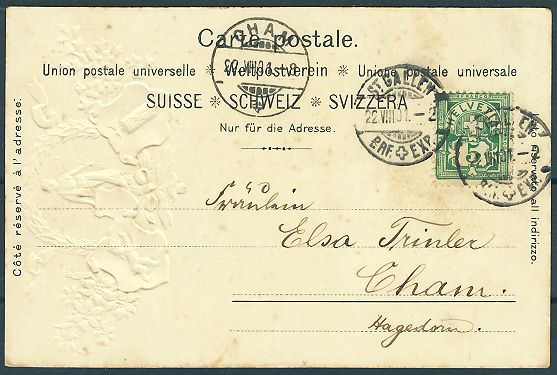 Carte postale.
Union postale universelle * Weltpostverein * Unione postale universale
SUISSE * SCHWEIZ * SVIZZERA
Nur für die Adresse.
Côté réservé à l'adresse.
CHAM
22.VIII.01.-8
ST. GALLEN
22.VIII.01.-2
BRF. EXP.
HELVETIA
5
BRF. EXP.
Fräulein
Elsa Trinler
Cham.
Hagedorn.
Lato riservato all indirizzo.